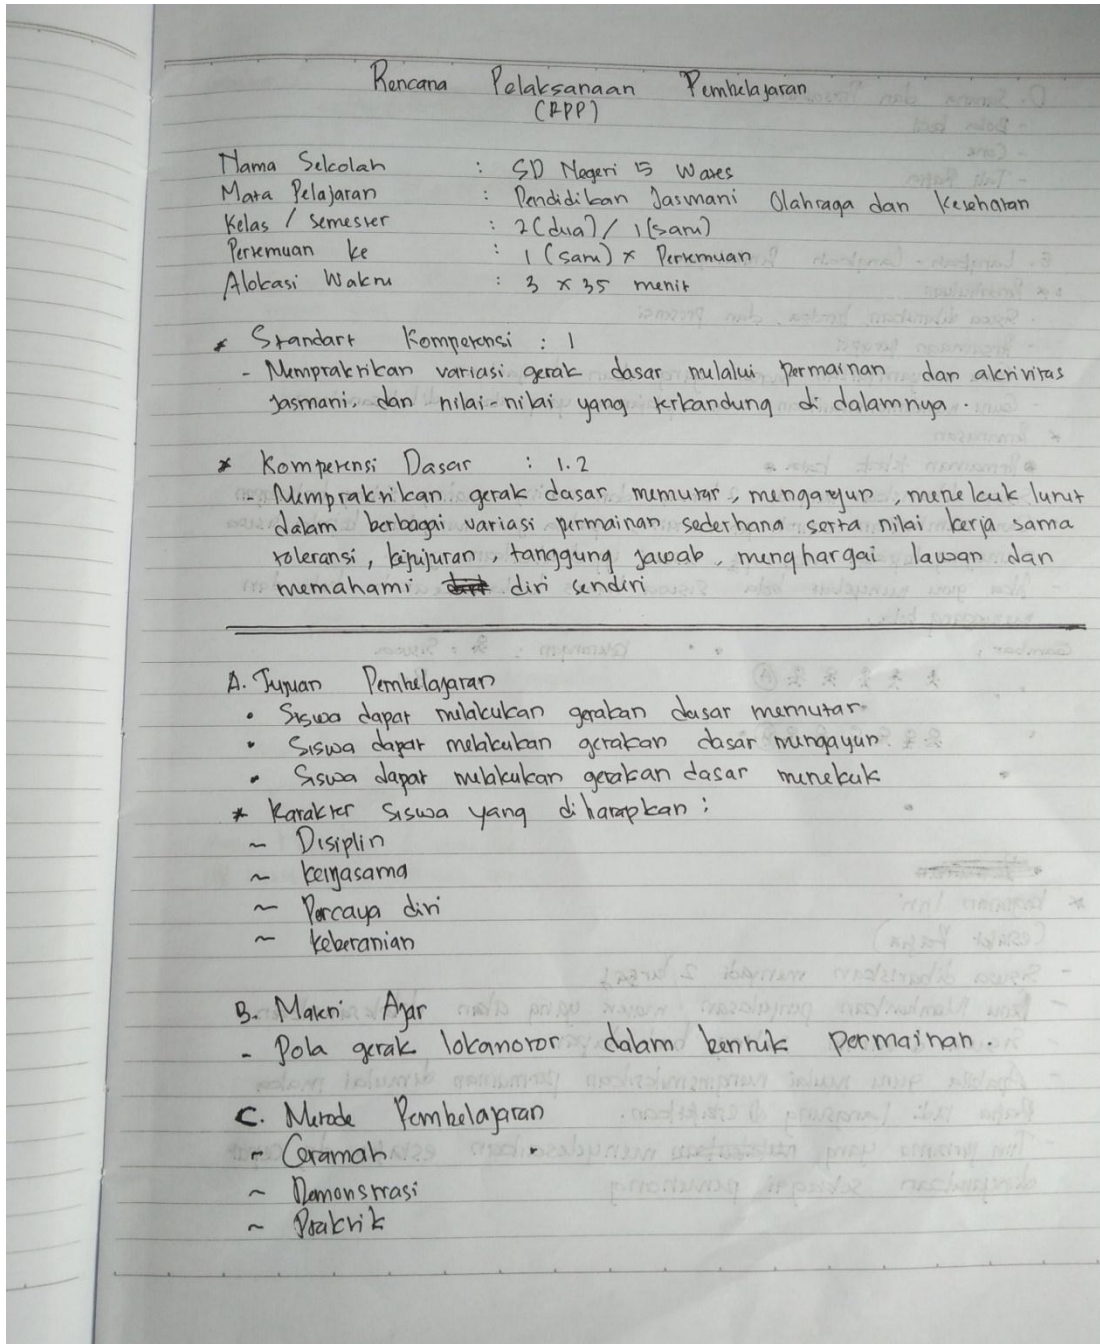 Rencana Pelaksanaan Pembelajaran
(RPP)
Nama Sekolah : SD Negeri 5 Wates
Mata Pelajaran : Pendidikan Jasmani Olahraga dan Kesehatan
Kelas / Semester : 2 (dua) / 1 (satu)
Pertemuan ke : 1 (satu) x Pertemuan
Alokasi Waktu : 3 x 35 menit
* Standart Kompetensi : 1
- Mempraktikan variasi gerak dasar melalui permainan dan aktivitas
Jasmani, dan nilai-nilai yang terkandung di dalamnya.
* Kompetensi Dasar : 1.2
- Mempraktikan gerak dasar memutar, mengayun, menekuk lutut
dalam berbagai variasi permainan sederhana serta nilai kerja sama
toleransi, kejujuran, tanggung jawab, menghargai lawan dan
memahami diri sendiri
A. Tujuan Pembelajaran
• Siswa dapat melakukan gerakan dasar memutar
• Siswa dapat melakukan gerakan dasar mengayun
• Siswa dapat melakukan gerakan dasar menekuk
* Karakter Siswa yang diharapkan :
~ Disiplin
~ Kerjasama
~ Percaya diri
~ Keberanian
B. Materi Ajar
- Pola gerak lokomotor dalam bentuk permainan.
C. Metode Pembelajaran
~ Ceramah
~ Demonstrasi
~ Praktik